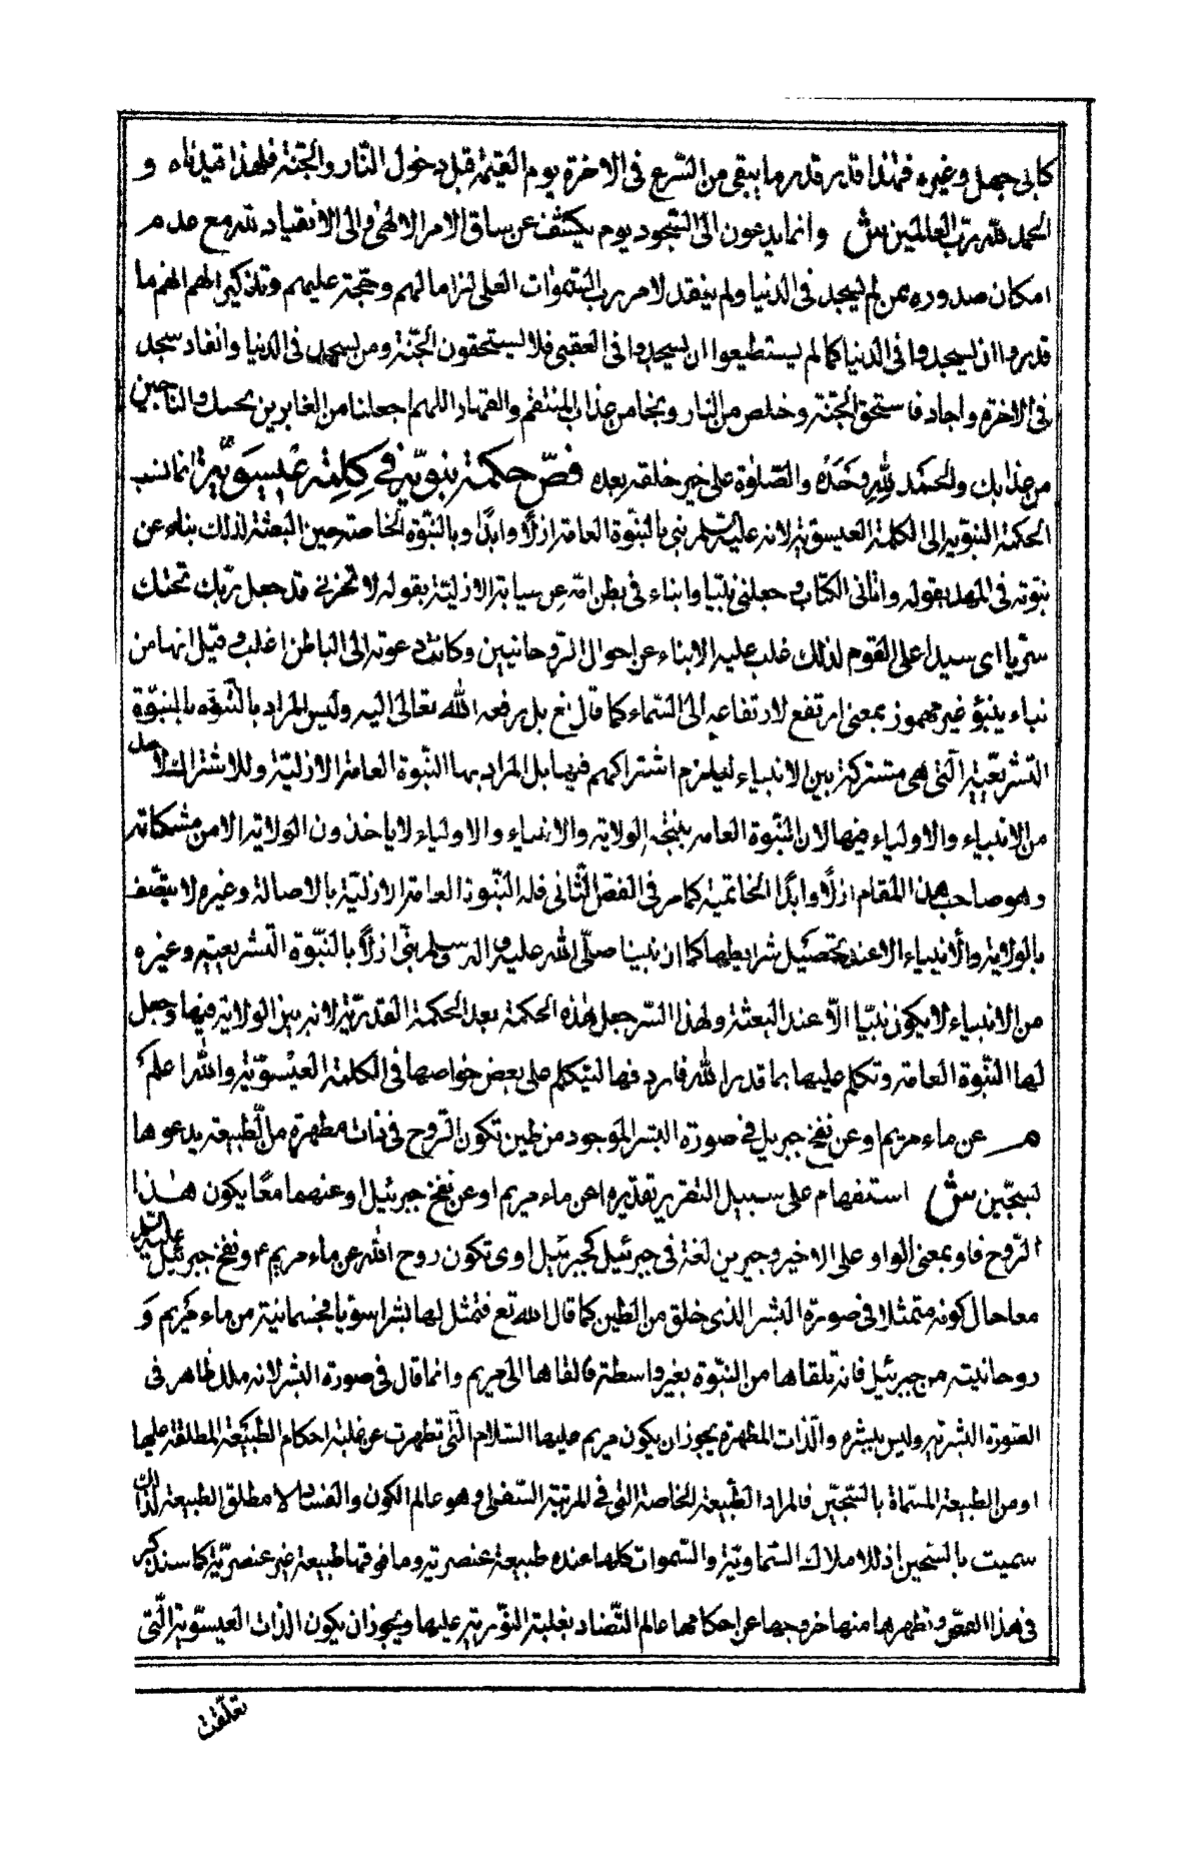 كابى جهل وغيره فهذا قدر قدر ما يبقى من الشرع فى الاخرة يوم القيمة قبل دخول النار والجنة فلهذا قيدناه و
الحمد لله رب العالمين ش وانما يدعون الى السجود يوم يكشف عن ساق الامر الالهى والى الانقياد لله مع عدم
امكان صدوره عمن لم يسجد فى الدنيا ولم ينقد لامر رب السموات العلى الزاما لهم وحجة عليهم وتذكيرا لهم انهم ما
قدروا ان يسجدوا فى الدنيا كما لم يستطيعوا ان يسجدوا فى العقبى فلا يستحقون الجنة ومن يسجد فى الدنيا وانقاد سجد
فى الاخرة واجاد فاستحق الجنة وخلص من النار ونجا من عذاب المنتقم والقهار اللهم اجعلنا من الغابرين بحسك والناجين
من عذابك والحمد لله وحده والصلوة على خير خلقه بعده فص حكمة نبوية فى كلمة عيسوية انما نسب
الحكمة النبوية الى الكلمة العيسوية لانه عليه السلام نبى بالنبوة العامة ازلا وابدا وبالنبوة الخاصة حين البعثة لذلك بناء عن
نبوته فى المهد بقوله واتانى الكتاب وجعلنى نبيا وانباء فى بطن امه عن سيادته الازلية بقوله لا تحزنى قد جعل ربك تحتك
سريا اى سيدا على القوم لذلك غلب عليه الانباء عن احوال الروحانيين وكانت دعوته الى الباطن اغلب وقيل انها من
نباء ينبؤ غير مهموز بمعنى ارتفع لارتفاعه الى السماء كما قال تع بل رفعه الله تعالى اليه وليس المراد بالنبوة بالنبوة
التشريعية التى هى مشتركة بين الانبياء ليلزم اشتراكهم فيها بل المراد بها النبوة العامة الازلية وللاشتراك لاحد
من الانبياء والاولياء فيها لان النبوة العامه نتيجة الولاية والانبياء والاولياء لا ياخذون الولاية الا من مشكاته
وهو صاحب هذا المقام ازلا وابدا الخاتمية كما مر فى الفص الثانى فله النبوة العامة الازلية بالاصالة وغيره لا يتصف
بالولاية والانبياء الا عند تحصيل شرايطها كما ان نبينا صلى الله عليه واله وسلم نبى ازلا بالنبوة التشريعيه وغيره
من الانبياء لا يكون نبيا الا عند البعثة ولهذا السر جعل هذه الحكمة بعد الحكمة القدرية لانه بين الولاية فيها وجعل
لها النبوة العامة وتكلم عليها بما قدر الله فاردفها ليتكلم على بعض خواصها فى الكلمة العيسوية والله اعلم
م عن ماء مريم او عن نفخ جبريل فى صورة البشر الموجود من طين تكون الروح فى ذات مطهرة من الطبيعة يدعوها
بسجين ش استفهام على سبيل التقرير تقديره اعن ماء مريم او عن نفخ جبرئيل او عنهما معا يكون هذا
الروح فاو بمعنى الواو على الاخير وجبرين لغة فى جبرئيل كجبرئيل اوى تكون روح الله عن ماء مريم ع ونفخ جبرئيل عليه السلام
معا حال كونه متمثلا فى صورة البشر الذى خلق من الطين كما قال الله تع فتمثل لها بشرا سويا فجسمانية من ماء مريم و
روحانيته من جبرئيل فانه تلقاها من النبوة بغير واسطة فالقاها الى مريم وانما قال فى صورة البشر لانه ملك ظاهر فى
الصورة البشرية وليس ببشره والذات المطهرة يجوز ان يكون مريم عليها السلام التى تطهرت عن غلبة احكام الطبيعة المطلقة عليها
او من الطبيعة المسماة بالسجين فالمراد الطبيعة الخاصة التى فى المرتبة السفلى وهو عالم الكون والفساد لا مطلق الطبيعة لذلك
سميت بالسجين اذ للاملاك السماوية والسموات كلها عنده طبيعة عنصرية وما فوقها طبيعة غير عنصرية كما سنذكر
فى هذا الفص وتطهرها منها خروجها عن احكامها عالم التضاد بغلبة النورية عليها ويجوز ان يكون الذات العيسوية التى
تعلقت